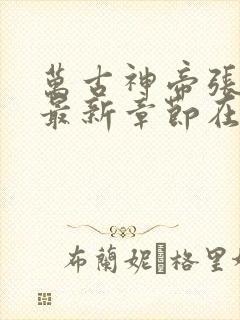 萬古神帝張
最新章節在
布蘭妮格里